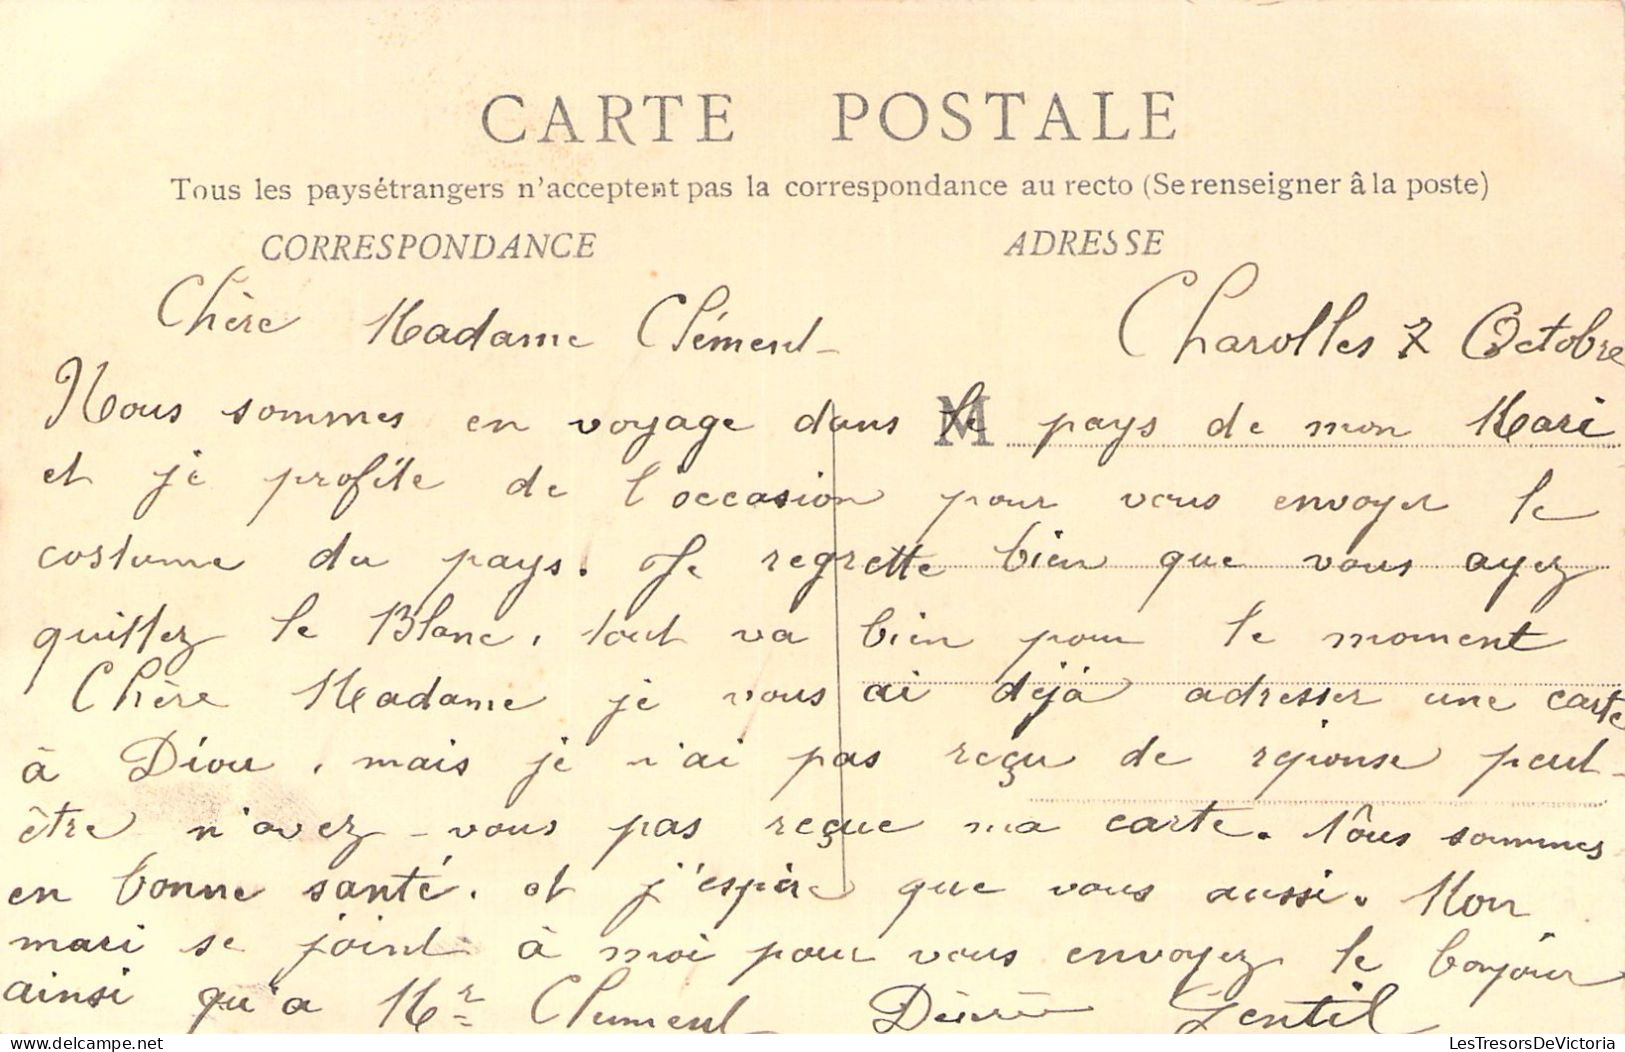 CARTE POSTALE
Tous les paysétrangers n'acceptent pas la correspondance au recto (Se renseigner â la poste)
CORRESPONDANCE ADRESSE
Chère Madame Clément Charolles 7 Octobre
Nous sommes en voyage dans le pays de mon Mari
M
et je profite de l'occasion pour vous envoyer le
costume du pays. Je regrette bien que vous ayez
quittez le Blanc, tout va bien pour le moment
Chère Madame je vous ai déjà adresser une carte
à Diou, mais je n'ai pas reçu de reponse peut-
être n'avez-vous pas reçue ma carte. Nous sommes
en bonne santé. et j'espère que vous aussi. Mon
mari se joint à moi pour vous envoyez le bonjour
ainsi qu'a Mr Clement Gentil
LesTresorsDeVictoria.com